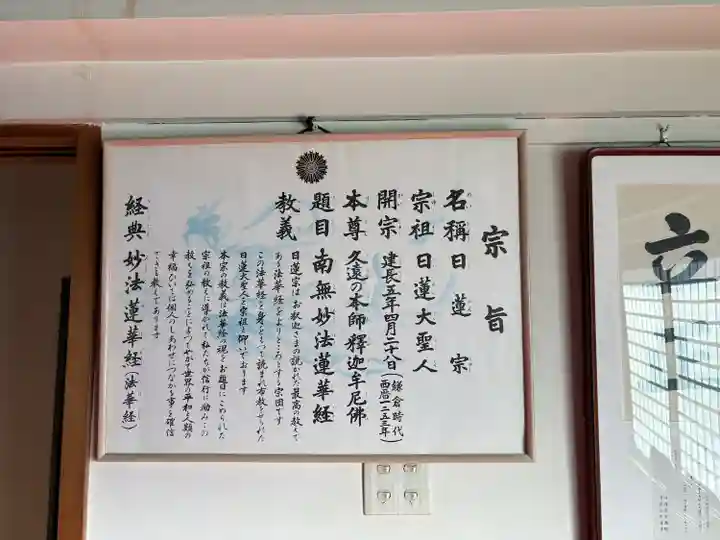 宗旨
名稱 日蓮宗
宗祖 日蓮大聖人
開宗 建長五年四月二十八日(鎌倉時代 西暦一二五三年)
本尊 久遠の本師釋迦牟尼佛
題目 南無妙法蓮華経
教義
日蓮宗はお釈迦さまの説かれた最高の教えで
ある法華経をよりどころとする宗団です
この法華経を身をもって読まれ布教をせられた
日蓮大聖人を宗祖と仰いでおります
本宗の教義は法華経の魂とお題目にこめられた
宗祖の教えに導かれて私たちが信行に励み
教えを弘めることによってやがて世界の平和と人類の
幸福ひいては個人のしあわせにつながる事を確信
できると教えてあります
経典 妙法蓮華経(法華経)
六